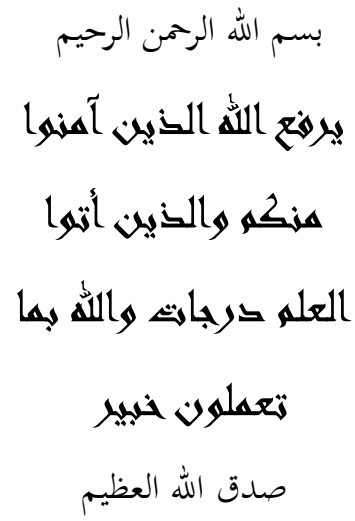 بسم الله الرحمن الرحيم
يرفع الله الذين آمنوا
منكم والذين أتوا
العلم درجات والله بما
تعملون خبير
صدق الله العظيم